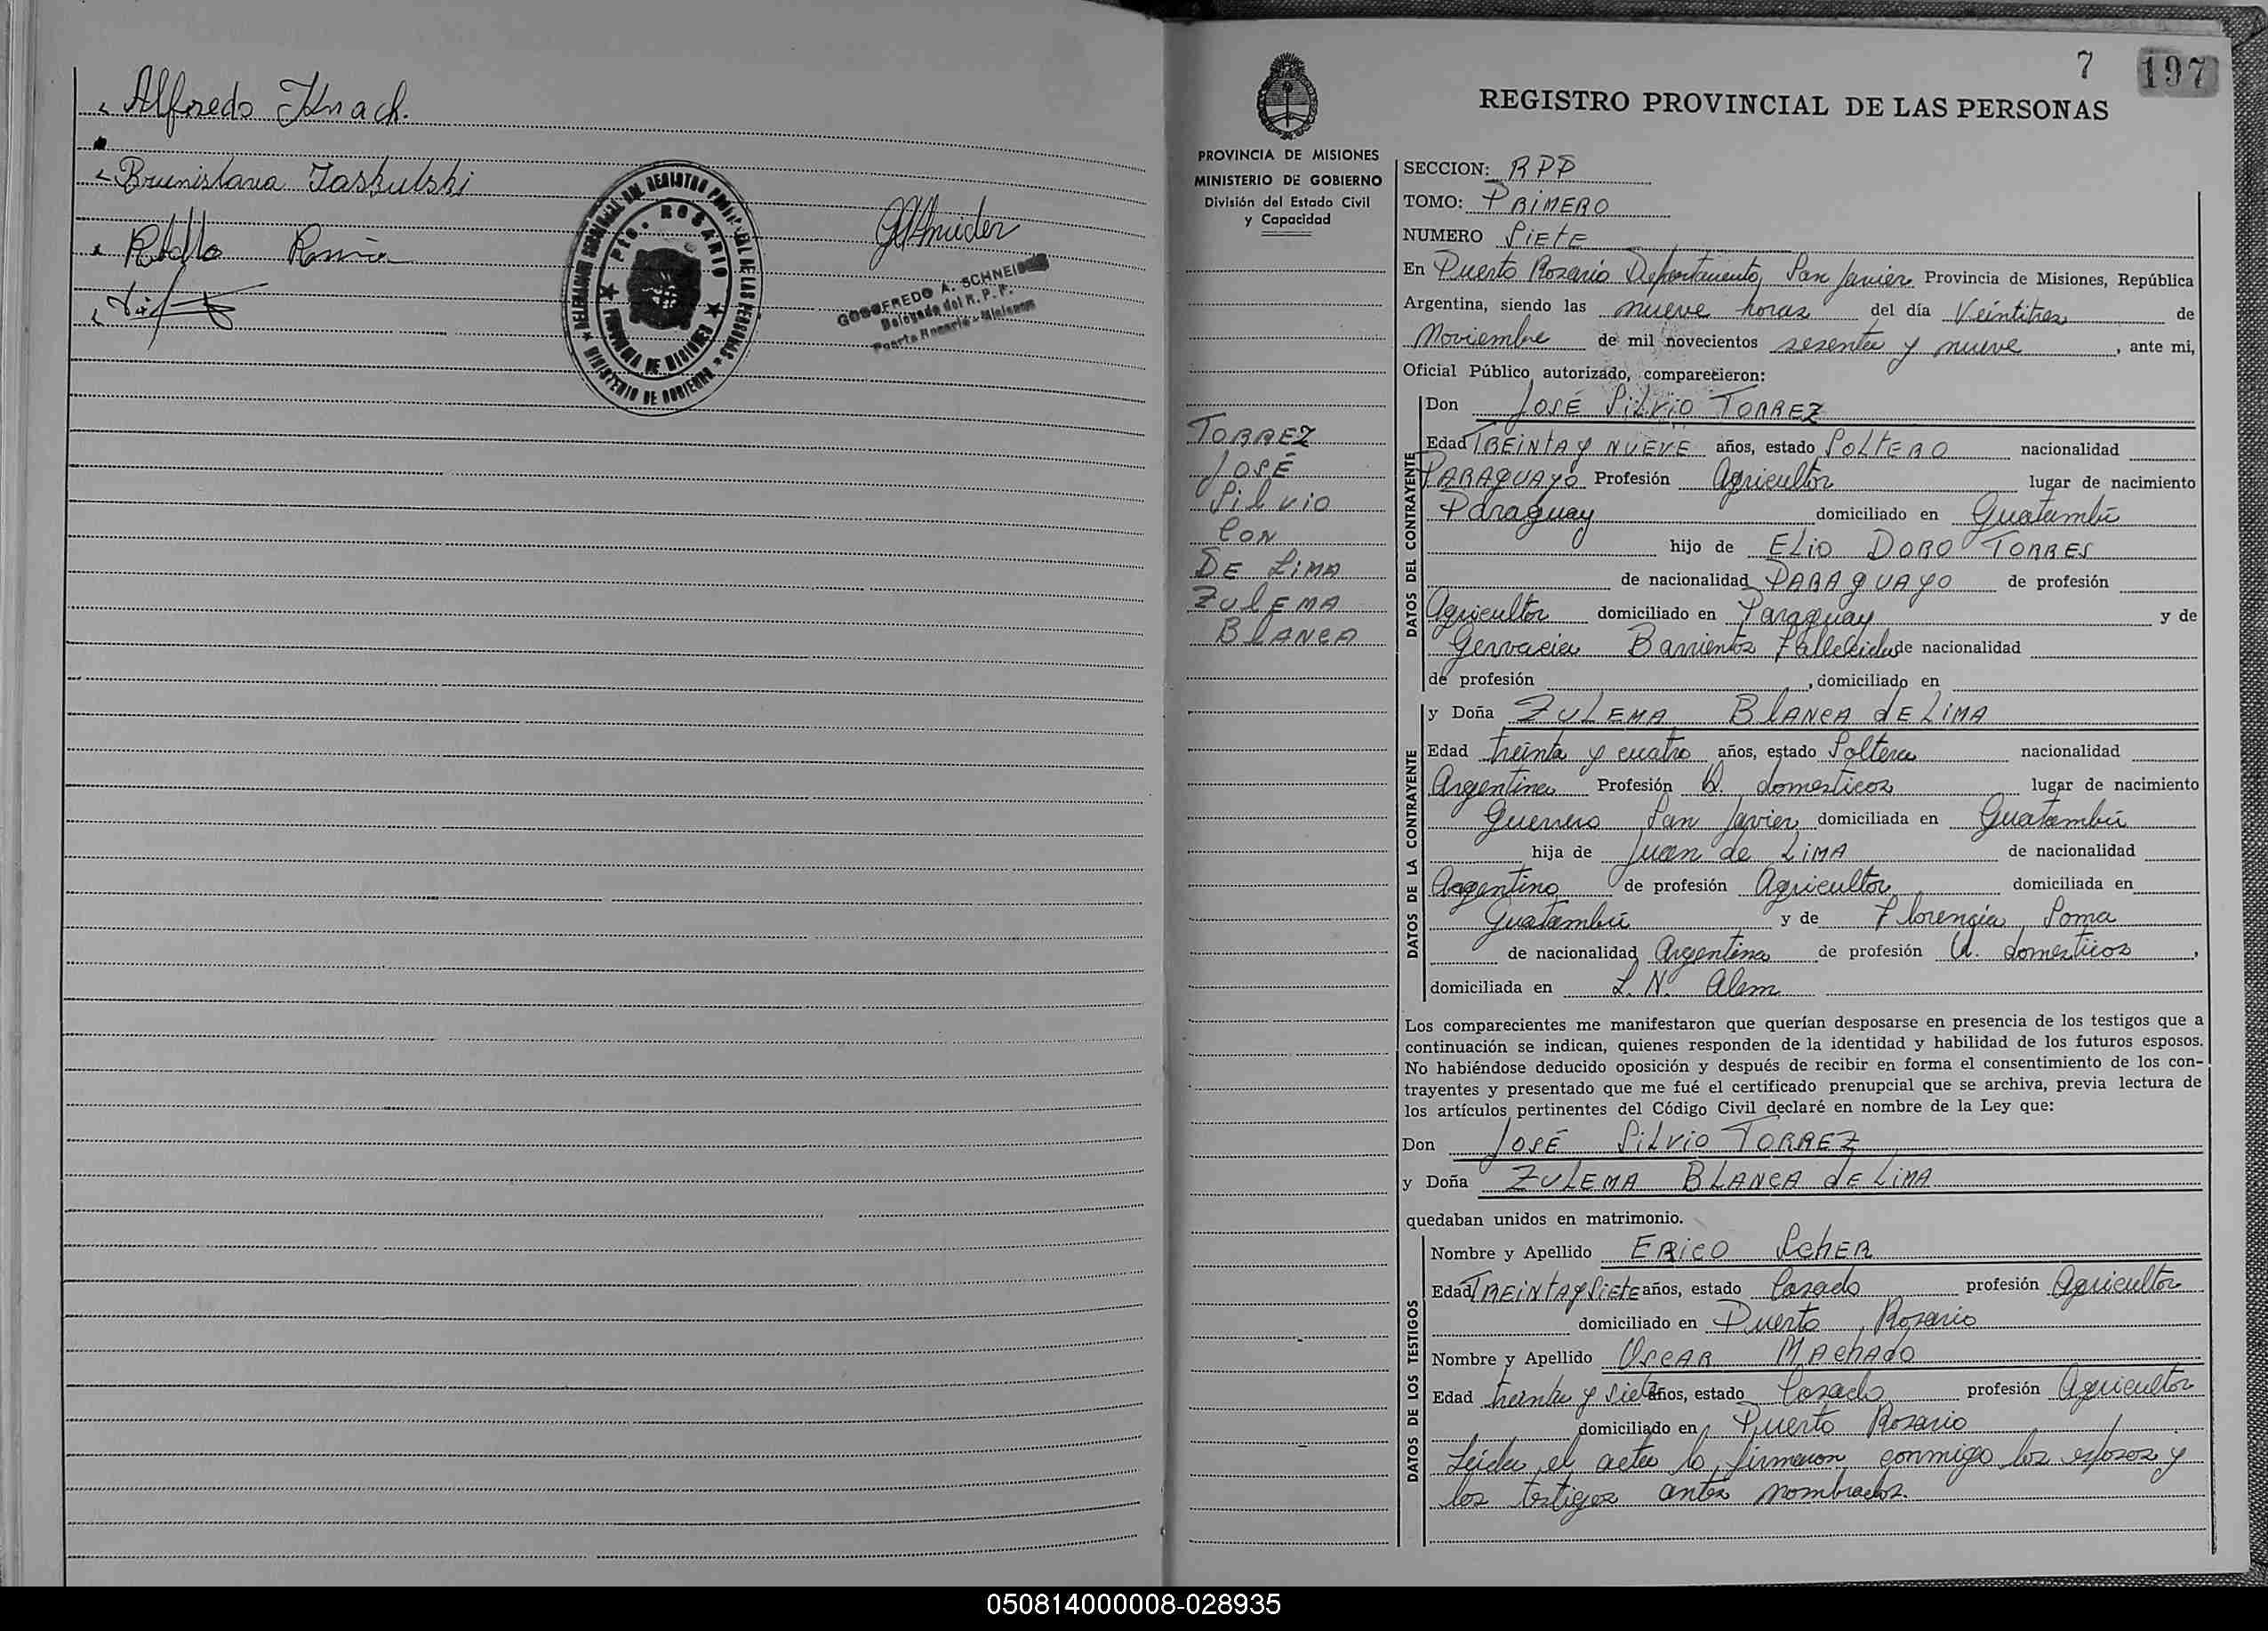 Alfredo Knach.
Brunislava Jaskulski
DELEGACION REGIONAL DEL REGISTRO PROVINCIAL DE LAS PERSONAS
Pto. ROSARIO
PROVINCIA DE MISIONES
MINISTERIO DE GOBIERNO
GODOFREDO A. SCHNEIDER
Delegado del R. P. P.
Puerto Rosario - Misiones
7 197
REGISTRO PROVINCIAL DE LAS PERSONAS
PROVINCIA DE MISIONES
MINISTERIO DE GOBIERNO
División del Estado Civil
y Capacidad
TORREZ
JOSÉ
Silvio
CON
DE LIMA
ZULEMA
BLANCA
SECCION: RPP
TOMO: PRIMERO
NUMERO SIETE
En Puerto Rosario Departamento San Javier Provincia de Misiones, República
Argentina, siendo las nueve horas del día Veintitres de
Noviembre de mil novecientos sesenta y nueve, ante mi,
Oficial Público autorizado, comparecieron:
DATOS DEL CONTRAYENTE
Don JOSÉ SILVIO TORREZ
Edad TREINTA Y NUEVE años, estado SOLTERO nacionalidad
PARAGUAYO Profesión Agricultor lugar de nacimiento
Paraguay domiciliado en Guatambú
hijo de ELIO DORO TORRES
de nacionalidad PARAGUAYO de profesión
Agricultor domiciliado en Paraguay y de
Gervacia Barrientos Fallecida de nacionalidad
de profesión , domiciliado en
DATOS DE LA CONTRAYENTE
y Doña ZULEMA BLANCA dE LIMA
Edad treinta y cuatro años, estado Soltera nacionalidad
Argentina Profesión Q. domesticos lugar de nacimiento
Guerrero San Javier domiciliada en Guatambú
hija de Juan de LIMA de nacionalidad
Argentino de profesión Agricultor domiciliada en
Guatambú y de Florencia Soma
de nacionalidad Argentina de profesión Q. domesticos ,
domiciliada en L. N. Alem
Los comparecientes me manifestaron que querían desposarse en presencia de los testigos que a
continuación se indican, quienes responden de la identidad y habilidad de los futuros esposos.
No habiéndose deducido oposición y después de recibir en forma el consentimiento de los con-
trayentes y presentado que me fué el certificado prenupcial que se archiva, previa lectura de
los artículos pertinentes del Código Civil declaré en nombre de la Ley que:
Don JOSÉ SILVIO TORREZ
y Doña ZULEMA BLANCA dE LIMA
quedaban unidos en matrimonio.
DATOS DE LOS TESTIGOS
Nombre y Apellido ERICO SCHER
Edad TREINTA Y SIETE años, estado Casado profesión Agricultor
domiciliado en Puerto Rosario
Nombre y Apellido OSCAR MACHADO
Edad treinta y siete años, estado Casado profesión Agricultor
domiciliado en Puerto Rosario
Leída el acta la firmaron conmigo los esposos y
los testigos antes nombrados.
050814000008-028935